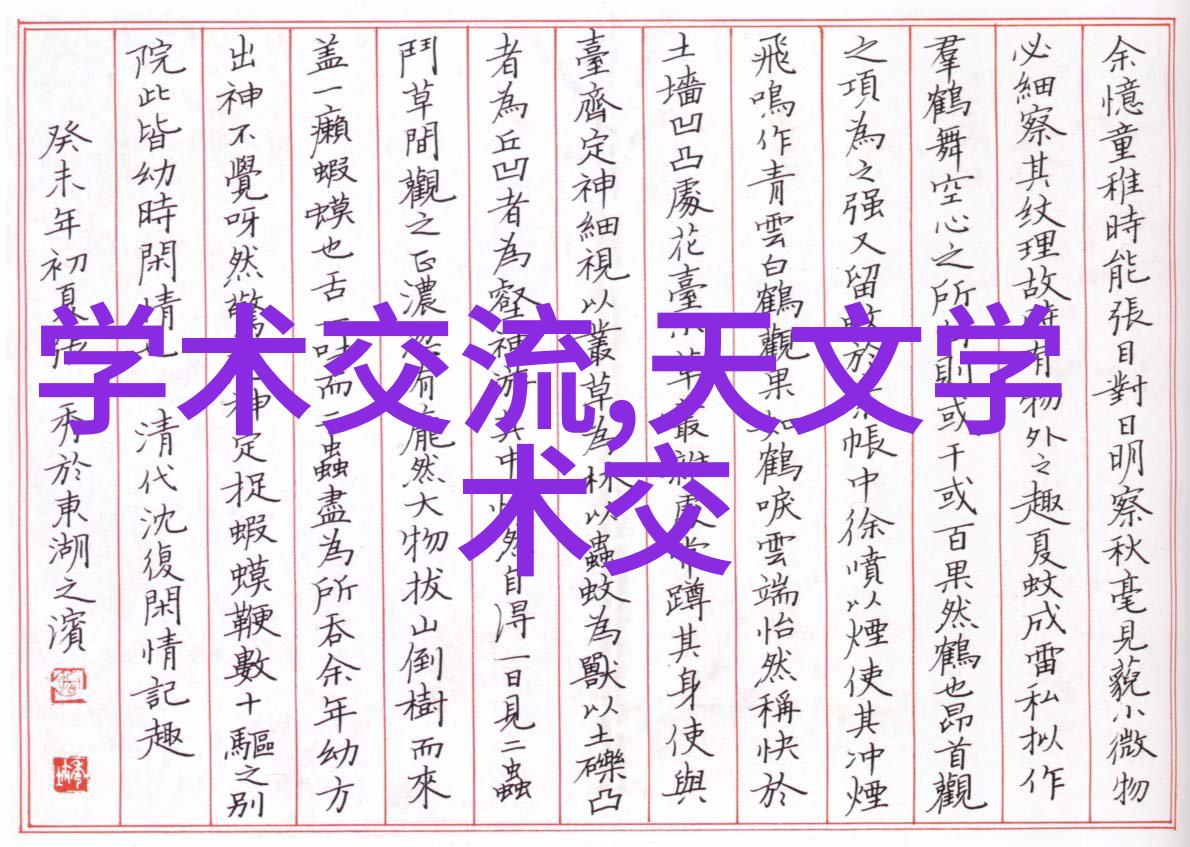 余憶童稚時能張目對日明察秋毫見藐小微物
必細察其紋理故時有物外之趣夏蚊成雷私拟作
羣鶴舞空心之所向則或千或百果然鶴也昂首觀
之項為之强又留蚊於素帳中徐噴以煙使其冲煙
飛鳴作青雲白鶴觀果如鶴唳雲端怡然稱快於
土墻凹凸處花臺小草叢雜處常蹲其身使與
臺齊定神細視以叢草為林以蟲蚊為獸以土礫凸
者為丘凹者為壑神游其中怡然自得一日見二蟲
鬥草間觀之正濃忽有龐然大物拔山倒樹而來
盖一癩蝦蟆也舌一吐而二蟲盡為所吞余年幼方
出神不覺呀然驚恐神定捉蝦蟆鞭數十驅之别
院此皆幼時閑情也 清代沈復閑情記趣
癸未年初夏張 秀於東湖之濱
学术交流,天文学
术交